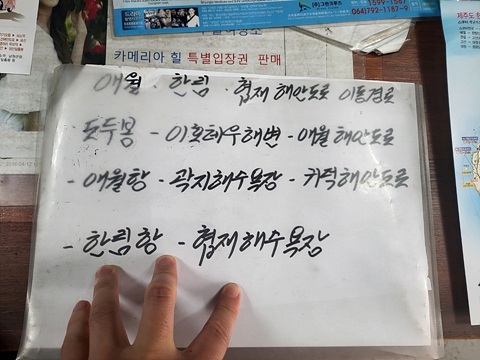 1599-1567
(주)그린크루즈
064)792-1187~9
제주도
카메리아 힐 특별입장권 판매
애월 · 한림 · 협재 해안도로 이동경로
도두봉 - 이호테우해변 - 애월 해안도로
- 애월항 - 곽지해수욕장 - 귀덕해안도로
- 한림항 - 협재해수욕장